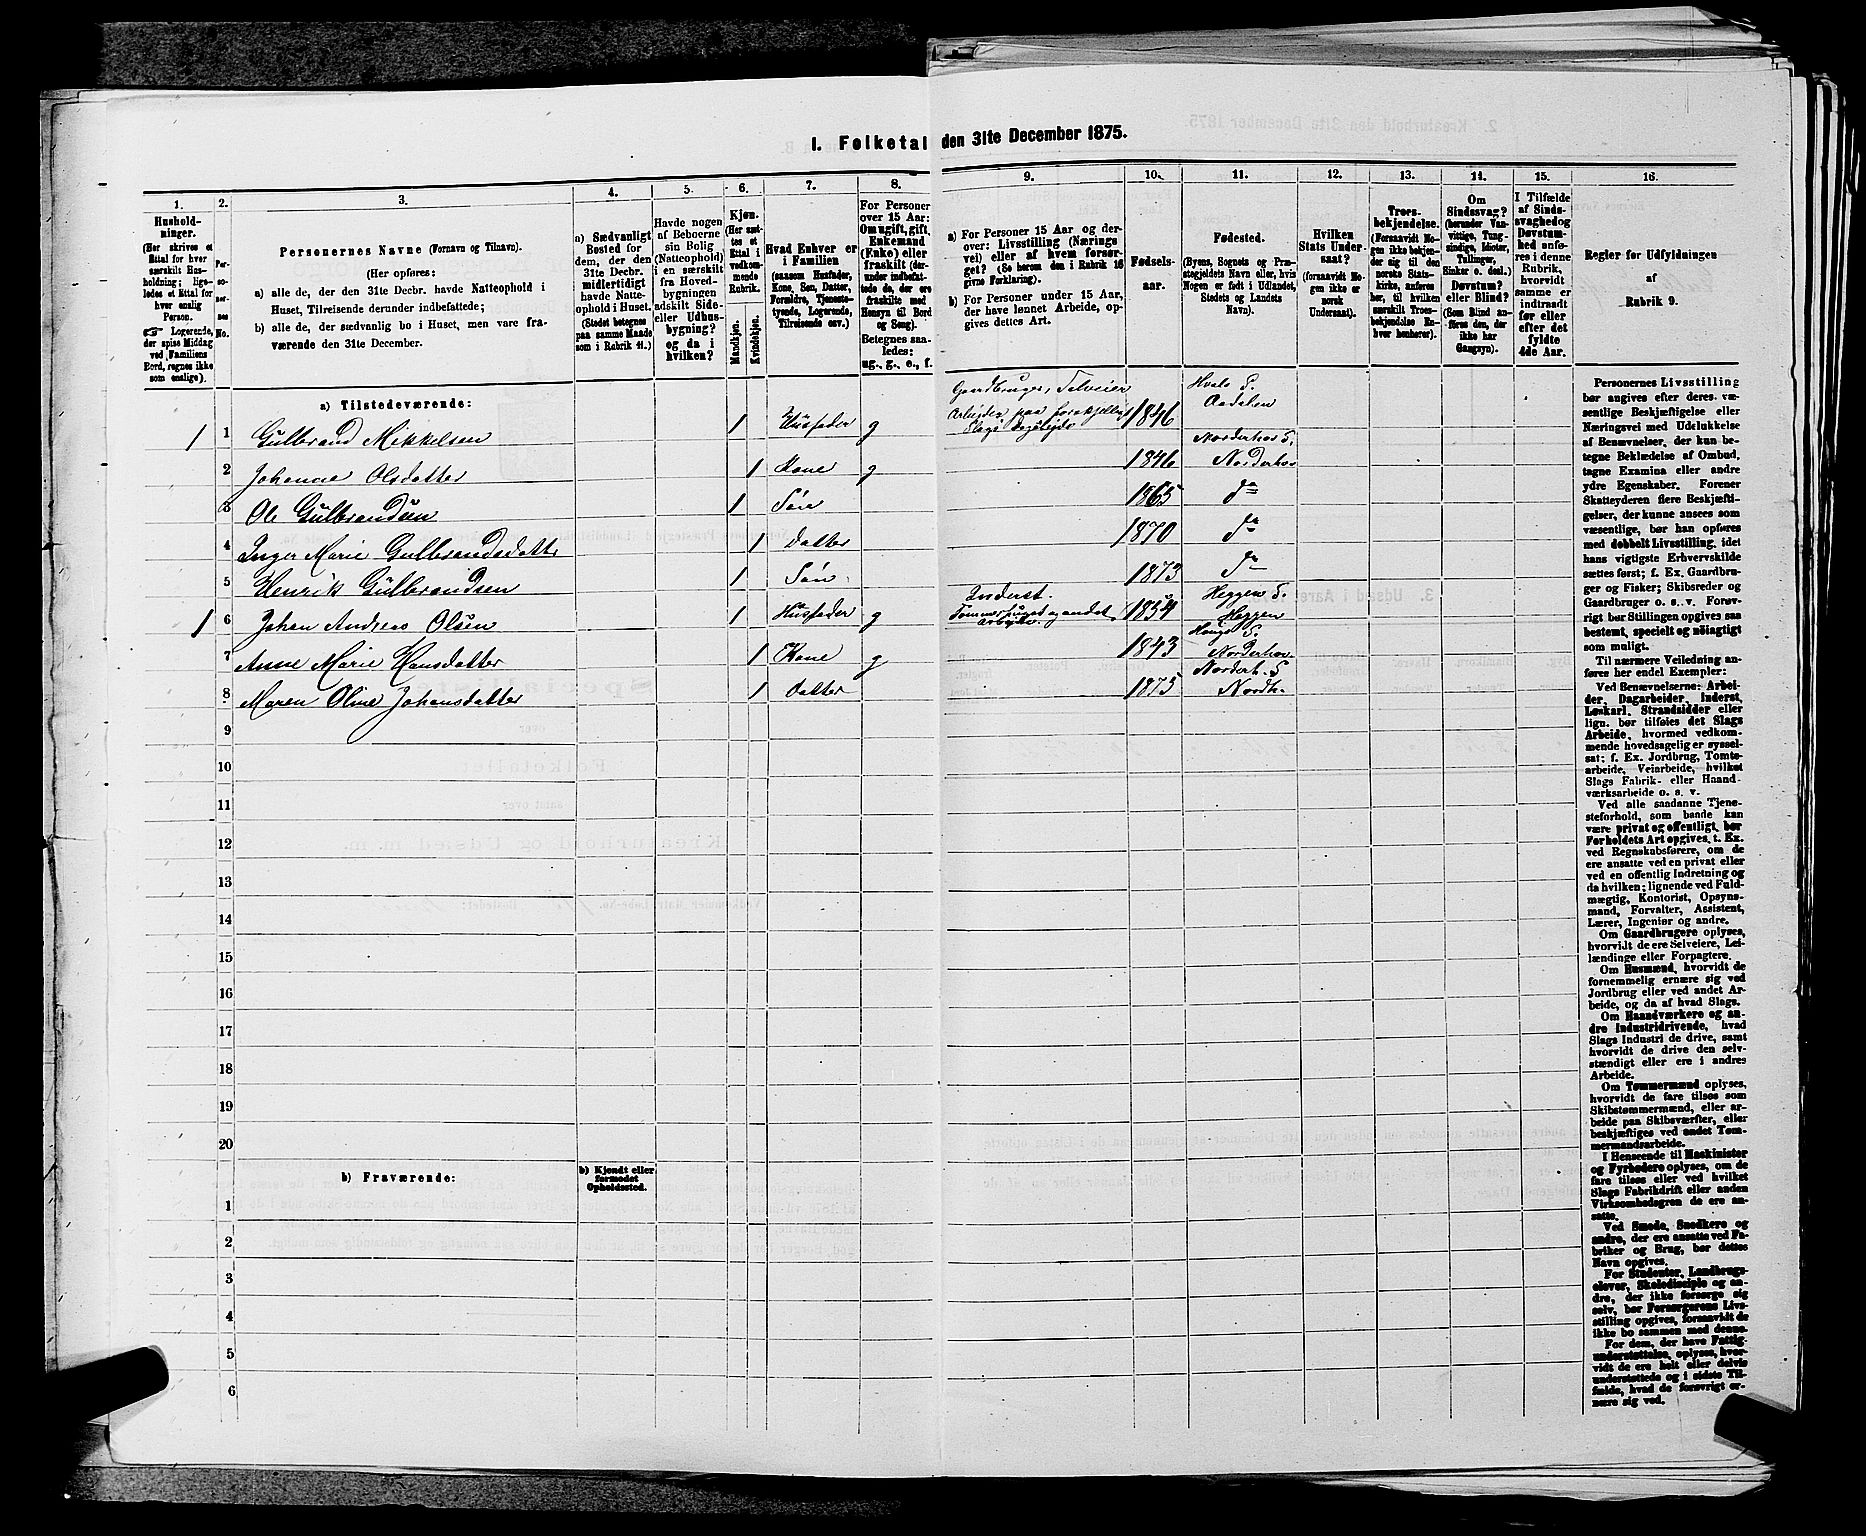 1. Folketal den 31te December 1875.
1.
Hushold-
ninger.
(Her skrives et
Ettal for hver
særskilt Hus-
holdning; lige-
ledes et Ettal for
hver enslig
Person.
☞ Logerende,
der spise Middag
ved Familiens
Bord, regnes ikke
som enslige).
2.
Per-
so-
ner-
nes
No.
3.
Personernes Navne (Fornavn og Tilnavn).
(Her opføres:
a) alle de, der den 31te Decbr. havde Natteophold i
Huset, Tilreisende derunder indbefattede;
b) alle de, der sædvanlig bo i Huset, men vare fra-
værende den 31te December.
4.
a) Sædvanligt
Bosted for
dem, der den
31te Decbr.
midlertidigt
havde Natte-
ophold i Huset.
(Stedet betegnes
paa samme Maade
som i Rubrik 11.)
5.
Havde nogen
af Beboerne
sin Bolig
(Natteophold)
i en særskilt
fra Hoved-
bygningen
adskilt Side-
eller Udhus-
bygning?
og da i
hvilken?
6.
Kjøn.
(Her sæt-
tes et
Ettal i
vedkom-
mende
Rubrik.
Mandkjøn.
Kvindekjøn.
7.
Hvad Enhver er
i Familien
(saasom Husfader,
Kone, Søn, Datter,
Forældre, Tjeneste-
tyende, Logerende,
Tilreisende osv.)
8.
For Personer
over 15 Aar:
Om ugift, gift,
Enkemand
(Enke) eller
fraskilt (der-
under indbefat-
tede de, der ere
fraskilte med
Hensyn til Bord
og Seng).
Betegnes saa-
ledes:
ug., g., e., f.
9.
a) For Personer 15 Aar og der-
over: Livsstilling (Nærings
vei) eller af hvem forsør-
get? (Se herom den i Rubrik 16
givne Forklaring).
b) For Personer under 15 Aar,
der have lønnet Arbeide, op-
gives dettes Art.
10.
Fødsels-
aar.
11.
Fødested.
(Byens, Sognets og Præ-
stegjeldets Navn eller, hvis
Nogen er født i Udlandet,
Stedets og Landets
Navn).
12.
Hvilken
Stats Under-
saat?
(foraavidt No-
gen ikke er
norsk
Undersaat).
13.
Troes-
bekjendelse.
(Foraavidt No-
gen ikke bekjen-
der sig til den
norske Stats-
kirke, anføres
her, til hvilken
særskilt Troes-
bekjendelse En-
hver henhører).
14.
Om
Sindssvag?
(herunder Van-
vittige, Tung-
sindige, Idioter,
Tullinger,
Sinker o. desl.)
Døvstum?
eller Blind?
(Som Blind an-
føres den, der
ikke har
Gangsyn).
15.
I Tilfælde
af Sinds-
svaghed og
Døvstum-
hed anfø-
res i denne
Rubrik,
hvorvidt
samme er
indtraadt
før eller
efter det
fyldte
4de Aar.
16.
Regler for Udfyldningen
af
Rubrik 9.
a) Tilstedeværende:
1 1 Gulbrand Mikkelsen 1 Husfader g Gaardbruger, Selveier Arbeider paa forskjelligt Slags 1846 Hvals S. Aadalen
2 Johanne Olsdatter 1 Kone g 1846 Norderhov S. Norderhov
3 Ole Gulbrandsen 1 Søn 1865 do
4 Inger Marie Gulbrandsdatte 1 Datter 1870 do
5 Henrik Gulbrandsen 1 Søn 1873 do
1 6 Johan Andreas Olsen 1 Husfader g Inderst. Tømmerhugst og andet arbeide 1854 Heggen S. Heggen
7 Anne Marie Hansdatter 1 Kone g 1843 Haugs S. Norderhov
8 Maren Oline Johansdatter 1 Datter 1875 Norderh. S. Nordh.
9
10
11
12
13
14
15
16
17
18
19
20
b) Fraværende:
b) Kjendt eller
formodet
Opholdssted.
1
2
3
4
5
6
Personernes Livsstilling
bør angives efter deres væ-
sentlige Beskjæftigelse eller
Næringsvei med Udelukkelse
af Benævnelser, der kun be-
tegne Beklædelse af Ombud,
tagne Examina eller andre
ydre Egenskaber. Forener
Skatteyderen flere Beskjæfti-
gelser, der kunne ansees som
væsentlige, bør han opføres
med dobbelt Livsstilling, idet
hans vigtigste Erhvervskilde
sættes først; f. Ex. Gaardbru-
ger og Fisker; Skibsreder og
Gaardbruger o. s. v. Forøv-
rigt bør Stillingen opgives saa
bestemt, specielt og nøiagtigt
som muligt.
Til nærmere Veiledning an-
føres her endel Exempler:
Ved Benævnelserne: Arbei-
der, Dagarbeider, Inderst,
Løskarl, Strandsidder eller
lign. bør tilføies det Slags
Arbeide, hvormed vedkom-
mende hovedsagelig er syssel-
sat; f. Ex. Jordbrug, Tomte-
arbeide, Veiarbeide, hvilket
Slags Fabrik- eller Haand-
værksarbeide o. s. v.
Ved alle saadanne Tjene-
steforhold, som baade kan
være privat og offentligt, bør
Forholdets Art opgives, t. Ex.
ved Regnskabsførere, om de
ere ansatte ved en privat eller
ved en offentlig Indretning og
da hvilken; lignende ved Fuld-
mægtig, Kontorist, Opsyns-
mand, Forvalter, Assistent,
Lærer, Ingeniør og andre.
Om Gaardbrugere oplyses,
hvorvidt de ere Selveiere, Lei-
lændinge eller Forpagtere.
Om Husmænd, hvorvidt de
fornemmelig ernære sig ved
Jordbrug eller ved andet Ar-
beide, og da af hvad Slags.
Om Haandværkere og an-
dre Industridrivende, hvad
Slags Industri de drive, samt
hvorvidt de drive den selv-
stændigt eller ere i andres
Arbeide.
Om Tømmermænd oplyses,
hvorvidt de fare tilsøs som
Skibstømmermænd, eller ar-
beide paa Skibsværfter, eller
beskjæftiges ved andet Tøm-
mermandsarbeide.
I Henseende til Maskinister
og Fyrbødere oplyses, om de
fare tilsøs eller ved hvilket
Slags Fabrikdrift eller anden
Virksomhedsgren de ere an-
satte.
Ved Smede, Snedkere og
andre, der ere ansatte ved Fa-
briker og Brug, bør dettes
Navn opgives.
For Studenter, Landbrugs-
elever, Skoledisciple og an-
dre, der ikke forsørge sig
selv, bør Forsørgerens Livs-
stilling opgives, foraavidt de
ikke bo sammen med denne.
For dem, der have Fattig-
understøttelse, oplyses, hvor-
vidt de ere helt eller delvis
understøttede og i sidste Til-
fælde, hvad de forøvrigt er-
nære sig ved.